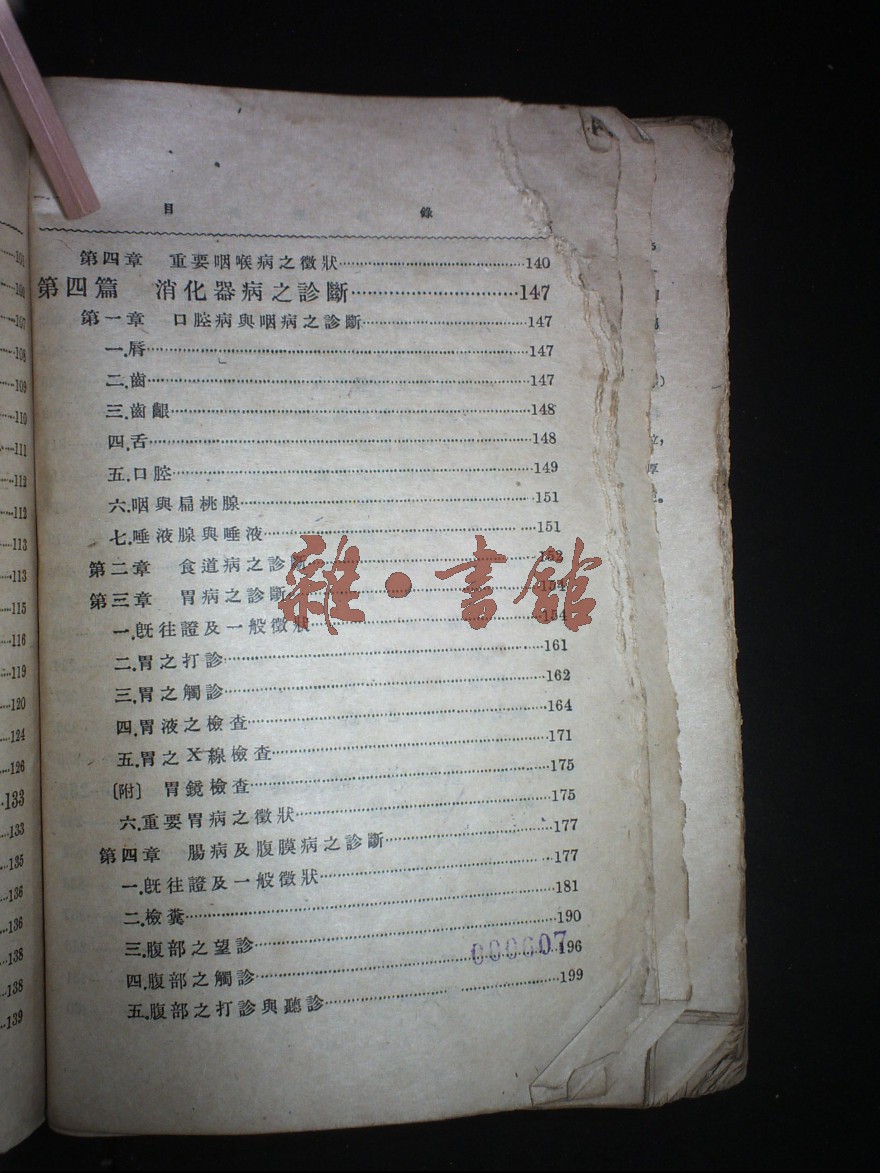 101
106
107
108
109
110
111
112
112
113
113
115
116
119
120
124
126
133
133
135
136
136
138
138
139
目　錄
第四章　重要咽喉病之徵狀……140
第四篇　消化器病之診斷……147
第一章　口腔病與咽病之診斷……147
一.唇……147
二.齒……147
三.齒齦……148
四.舌……148
五.口腔……149
六.咽與扁桃腺……151
七.唾液腺與唾液……151
第二章　食道病之診斷……152
第三章　胃病之診斷……154
一.旣往證及一般徵狀……154
二.胃之打診……161
三.胃之觸診……162
四.胃液之檢查……164
五.胃之X線檢查……171
〔附〕　胃鏡檢查……175
六.重要胃病之徵狀……175
第四章　腸病及腹膜病之診斷……177
一.旣往證及一般徵狀……177
二.檢糞……181
三.腹部之望診……190
四.腹部之觸診……196
五.腹部之打診與聽診……199
000607
雜·書館